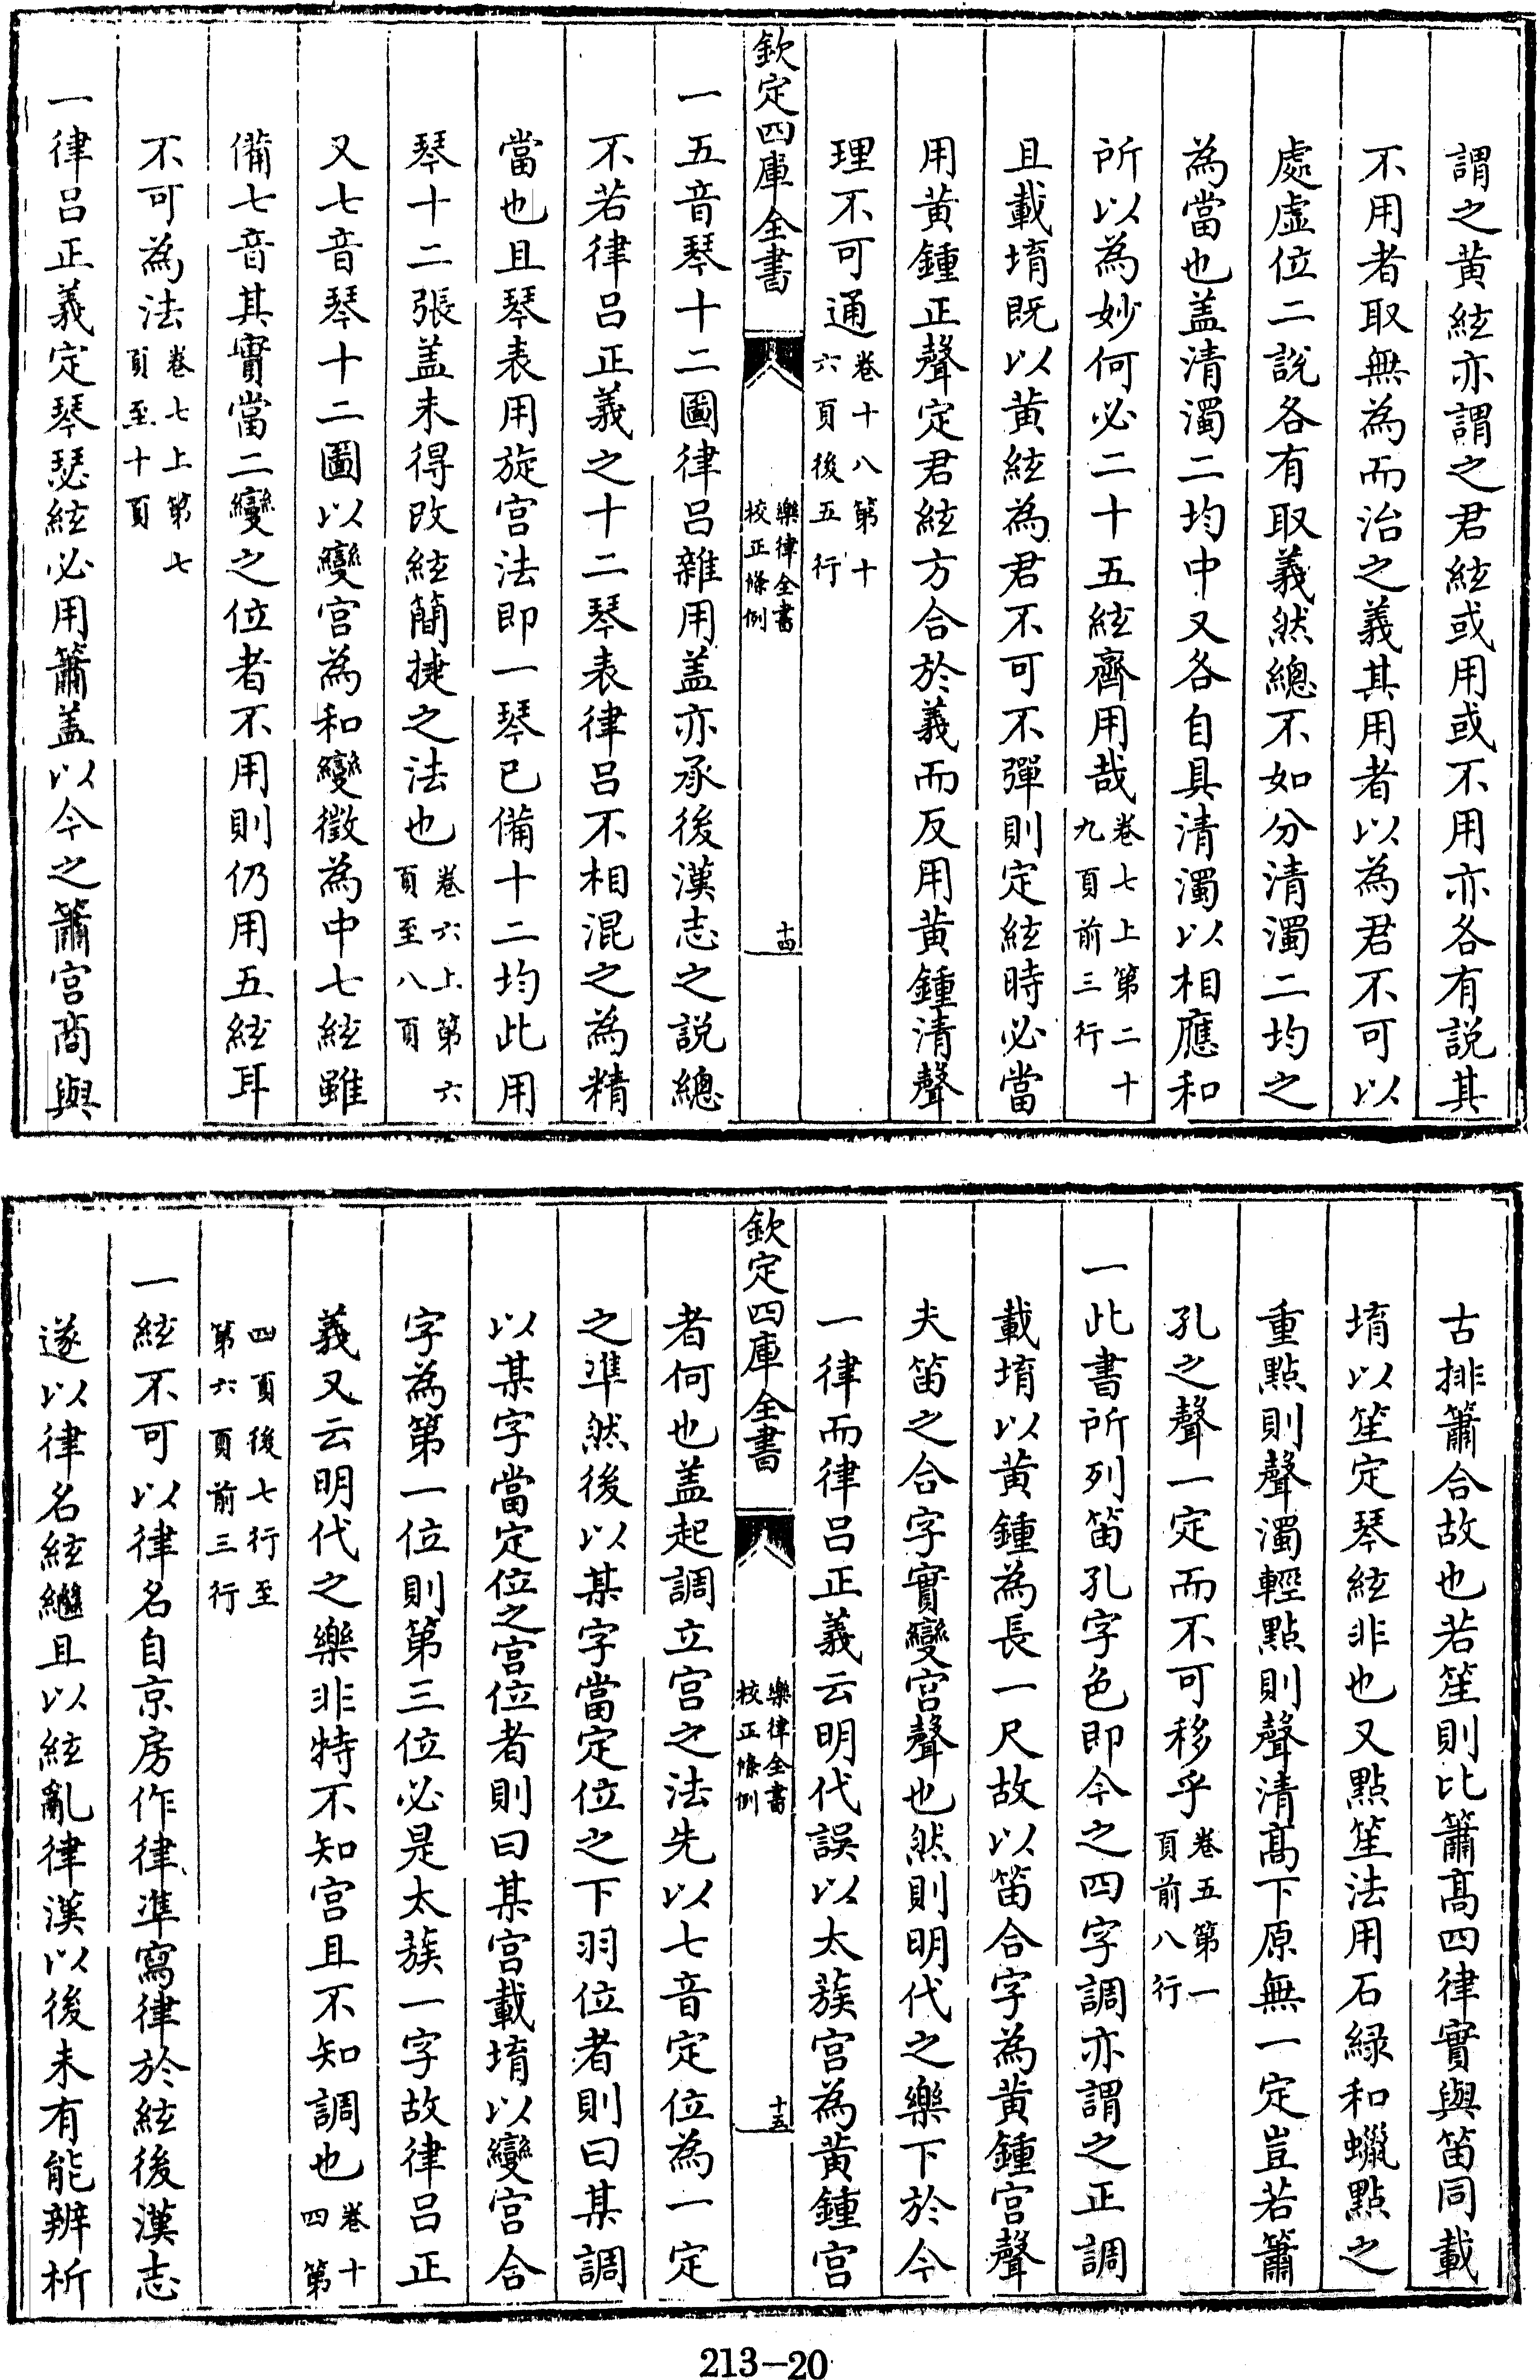 謂之黄絃亦謂之君絃或用或不用亦各有説其
不用者取無為而治之義其用者以為君不可以
處虛位二説各有取義然總不如分清濁二均之
為當也盖清濁二均中又各自具清濁以相應和
所以為妙何必二十五絃齊用哉卷七上第二十九頁前三行
且載堉既以黄絃為君不可不彈則定絃時必當
用黄鍾正聲定君絃方合於義而反用黄鍾清聲
理不可通卷十八第十六頁後五行
欽定四庫全書 樂律全書校正條例 十四
一五音琴十二圖律吕雜用盖亦承後漢志之説總
不若律吕正義之十二琴表律吕不相混之為精
當也且琴表用旋宫法即一琴已備十二均此用
琴十二張盖未得改絃簡捷之法也卷六上第六頁至八頁
又七音琴十二圖以變宫為和變徵為中七絃雖
備七音其實當二變之位者不用則仍用五絃耳
不可為法卷七上第七頁至十頁
一律吕正義定琴瑟絃必用簫盖以今之簫宫商與
古排簫合故也若笙則比簫髙四律實與笛同載
堉以笙定琴絃非也又點笙法用石緑和蠟點之
重點則聲濁輕點則聲清髙下原無一定豈若簫
孔之聲一定而不可移乎卷五第一頁前八行
一此書所列笛孔字色即今之四字調亦謂之正調
載堉以黄鍾為長一尺故以笛合字為黄鍾宫聲
夫笛之合字實變宫聲也然則明代之樂下於今
一律而律吕正義云明代誤以太蔟宫為黄鍾宫
欽定四庫全書 樂律全書校正條例 十五
者何也盖起調立宫之法先以七音定位為一定
之準然後以某字當定位之下羽位者則曰某調
以某字當定位之宫位者則曰某宫載堉以變宫合
字為第一位則第三位必是太蔟一字故律吕正
義又云明代之樂非特不知宫且不知調也卷十四第
四頁後七行至第六頁前三行
一絃不可以律名自京房作律準寫律於絃後漢志
遂以律名絃繼且以絃亂律漢以後未有能辨析
213—20